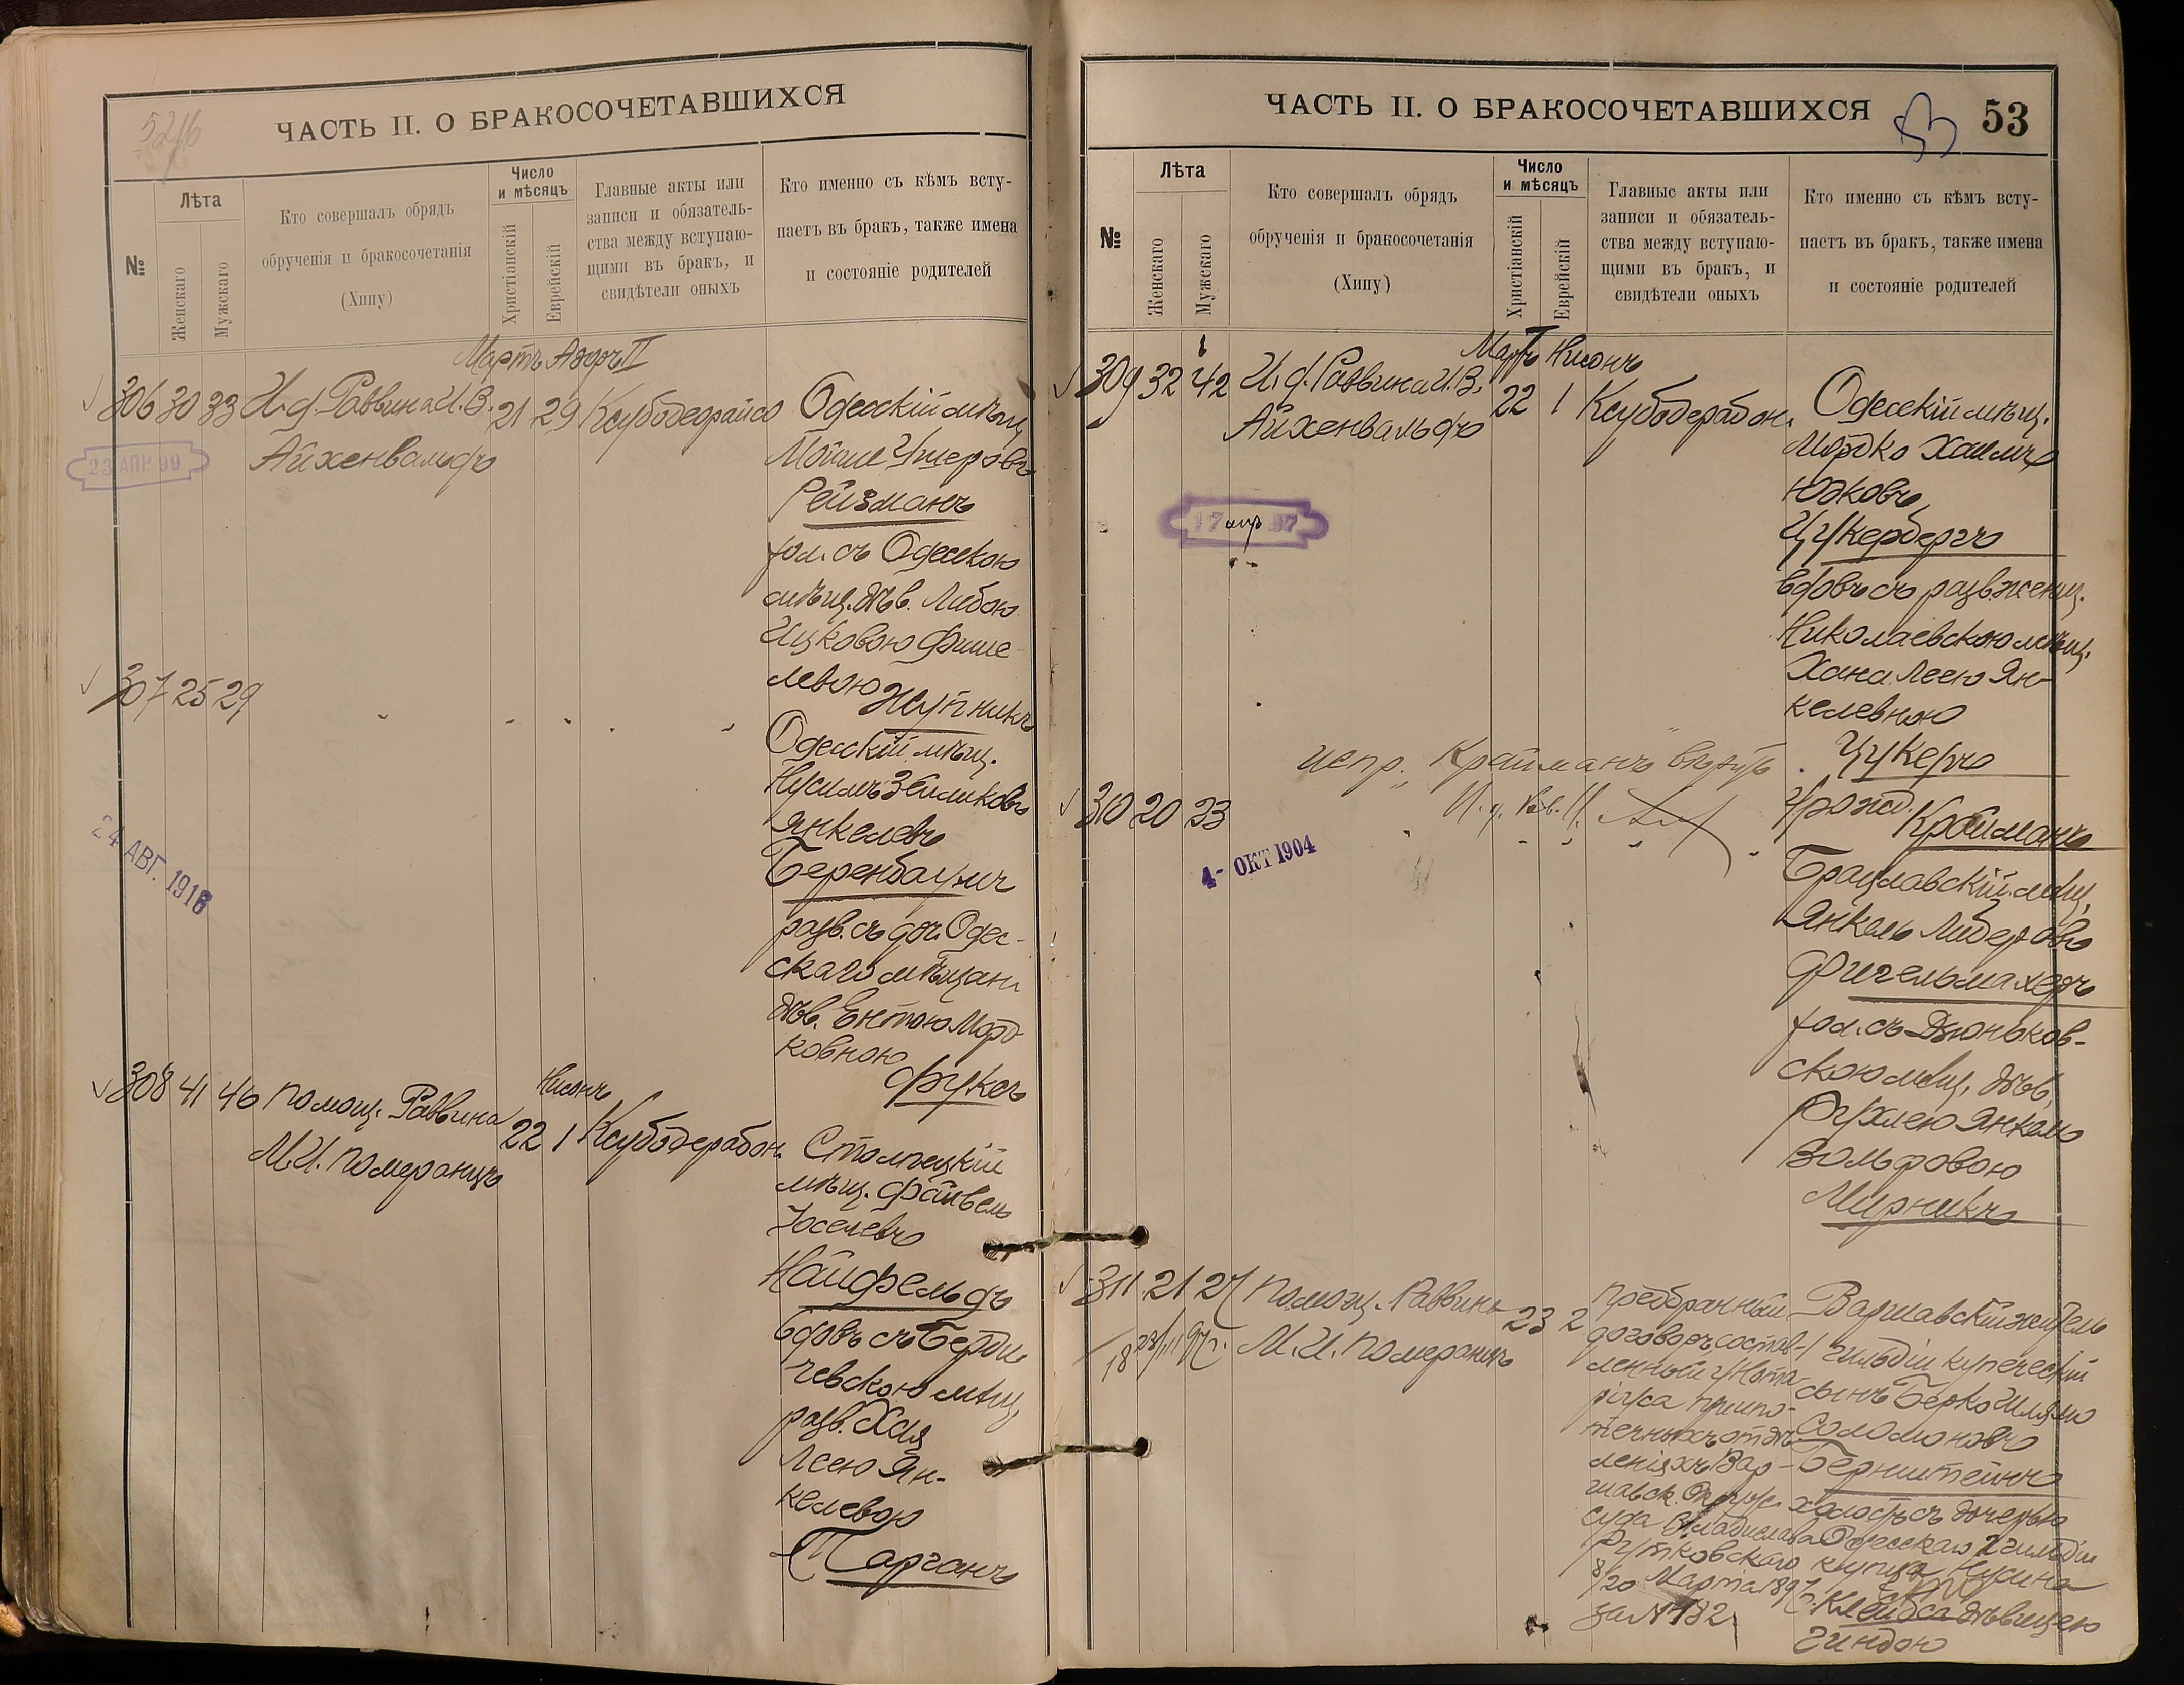 52об
ЧАСТЬ II. О БРАКОСОЧЕТАВШИХСЯ
№
Лѣта
Женскаго
Мужскаго
Кто совершалъ обрядъ
обрученія и бракосочетанія
(Хипу)
Число
и мѣсяцъ
Христіанскій
Еврейскій
Главные акты или
записи и обязатель-
ства между вступаю-
щими въ бракъ, и
свидѣтели оныхъ
Кто именно съ кѣмъ всту-
паетъ въ бракъ, также имена
и состояніе родителей
Мартъ Адаръ II
306 30 33 И. д. Раввина И. В. 21 29
Айхенвальдъ
23 АПР 99
Одесскій мѣщ.
Мойше Ушеровъ
Рейзманъ
хол. съ Одесскою
мѣщ. дѣв. Либою
Ицковою Фише-
левою
307 25 29
Одесскій мѣщ.
Нусимъ Зейликовъ
Янкелевъ
Беренбаумъ
разв. съ доч. Одес-
скаго мѣщани
дѣв. Ентою Морд-
ковною
Фуксъ
24 АВГ. 1916
Нисанъ
308 41 46 Помощ. Раввина 22 1 Ксубодерабон.
М. И. Померанцъ
Столпецкій
мѣщ. Файвель
Іоселевъ
Найфельдъ
вдовъ съ Берди-
чевскою мѣщ.
разв. Хая
Лею Ян-
келевою
Тарганъ
ЧАСТЬ II. О БРАКОСОЧЕТАВШИХСЯ
53
53
№
Лѣта
Женскаго
Мужскаго
Кто совершалъ обрядъ
обрученія и бракосочетанія
(Хипу)
Число
и мѣсяцъ
Христіанскій
Еврейскій
Главные акты или
записи и обязатель-
ства между вступаю-
щими въ бракъ, и
свидѣтели оныхъ
Кто именно съ кѣмъ всту-
паетъ въ бракъ, также имена
и состояніе родителей
Мартъ Нисанъ
309 32 42 И. д. Раввина И. В. 22 1 Ксубодерабон.
Айхенвальдъ
17 апр 97
Одесскій мѣщ.
Мордко Хаимъ
Юдковъ
Цукербергъ
вдовъ съ разв. женщ.
Николаевскою мѣщ.
Хана Леею Ян-
келевною
Цукеръ
урожд. Крайманъ
испр. „Крайманъ" вѣрить
И. д. Рав. И.
310 20 23
4- ОКТ 1904
Брацлавскій мѣщ.
Янкель Либеровъ
Фигельмахеръ
хол. съ Дзюньков-
скою мѣщ. дѣв.
Рухлею Янкель
Вольфовою
Мирникъ
311 21 27 Помощ. Раввина 23 2
М. И. Померанцъ
Предбрачный
договоръ состав-
ленный у Нота-
ріуса при ипо-
течныхъ отдѣ-
леніяхъ Вар-
шавск. Окруж.
суда Владислава
Рутковскаго
8/20 Марта 1897 г.
за № 182
Варшавскій житель
1 гильдіи купеческій
сынъ Берко Шлямо
Соломоновъ
Бернштейнъ
холостъ съ дочерью
Одесскаго 2 гильдіи
купца Нусина
Клейбса дѣвицею
Гиндою